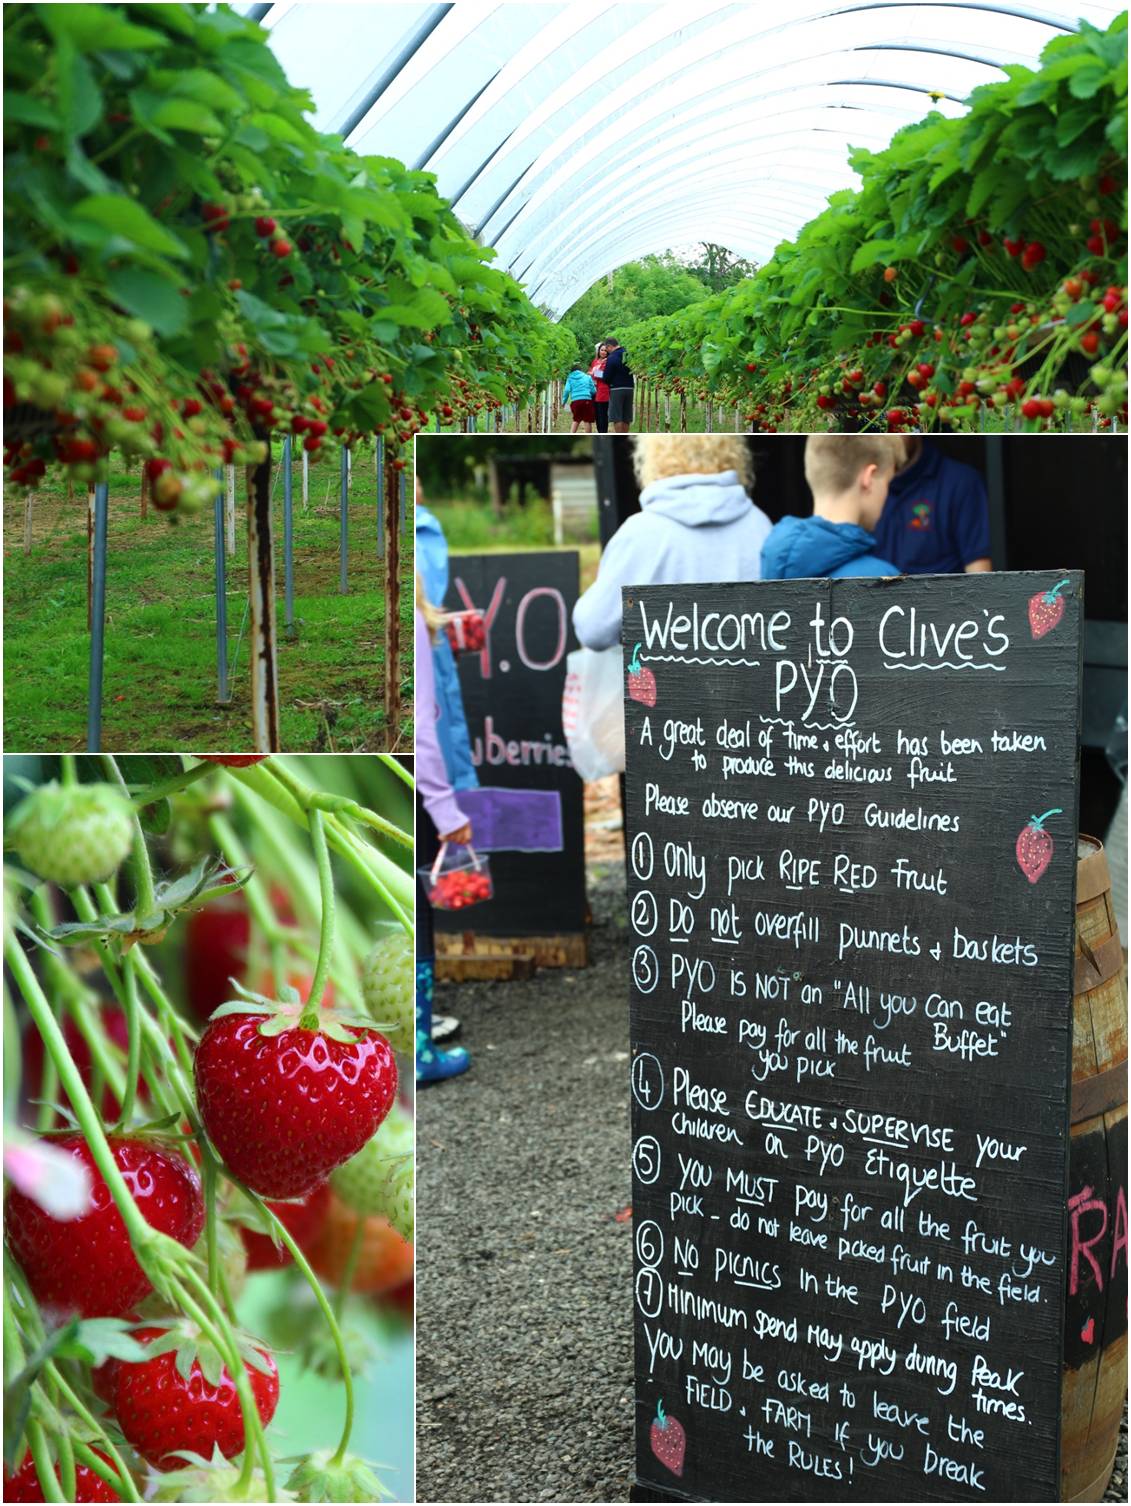 Y.O
berries
Welcome to Clive's
PYO
A great deal of time & effort has been taken
to produce this delicious fruit
Please observe our PYO Guidelines
① Only pick RIPE RED fruit
② Do not overfill punnets & baskets
③ PYO IS NOT an "All you can eat
Buffet"
Please pay for all the fruit
you pick
④ Please EDUCATE & SUPERVISE your
Children on PYO Etiquette
⑤ YOU MUST pay for all the fruit you
pick - do not leave picked fruit in the field.
⑥ NO PICNICS in the PYO field
⑦ Minimum spend may apply during Peak
times.
YOU May be asked to leave the
FIELD & FARM if you break
the RULES!
RA